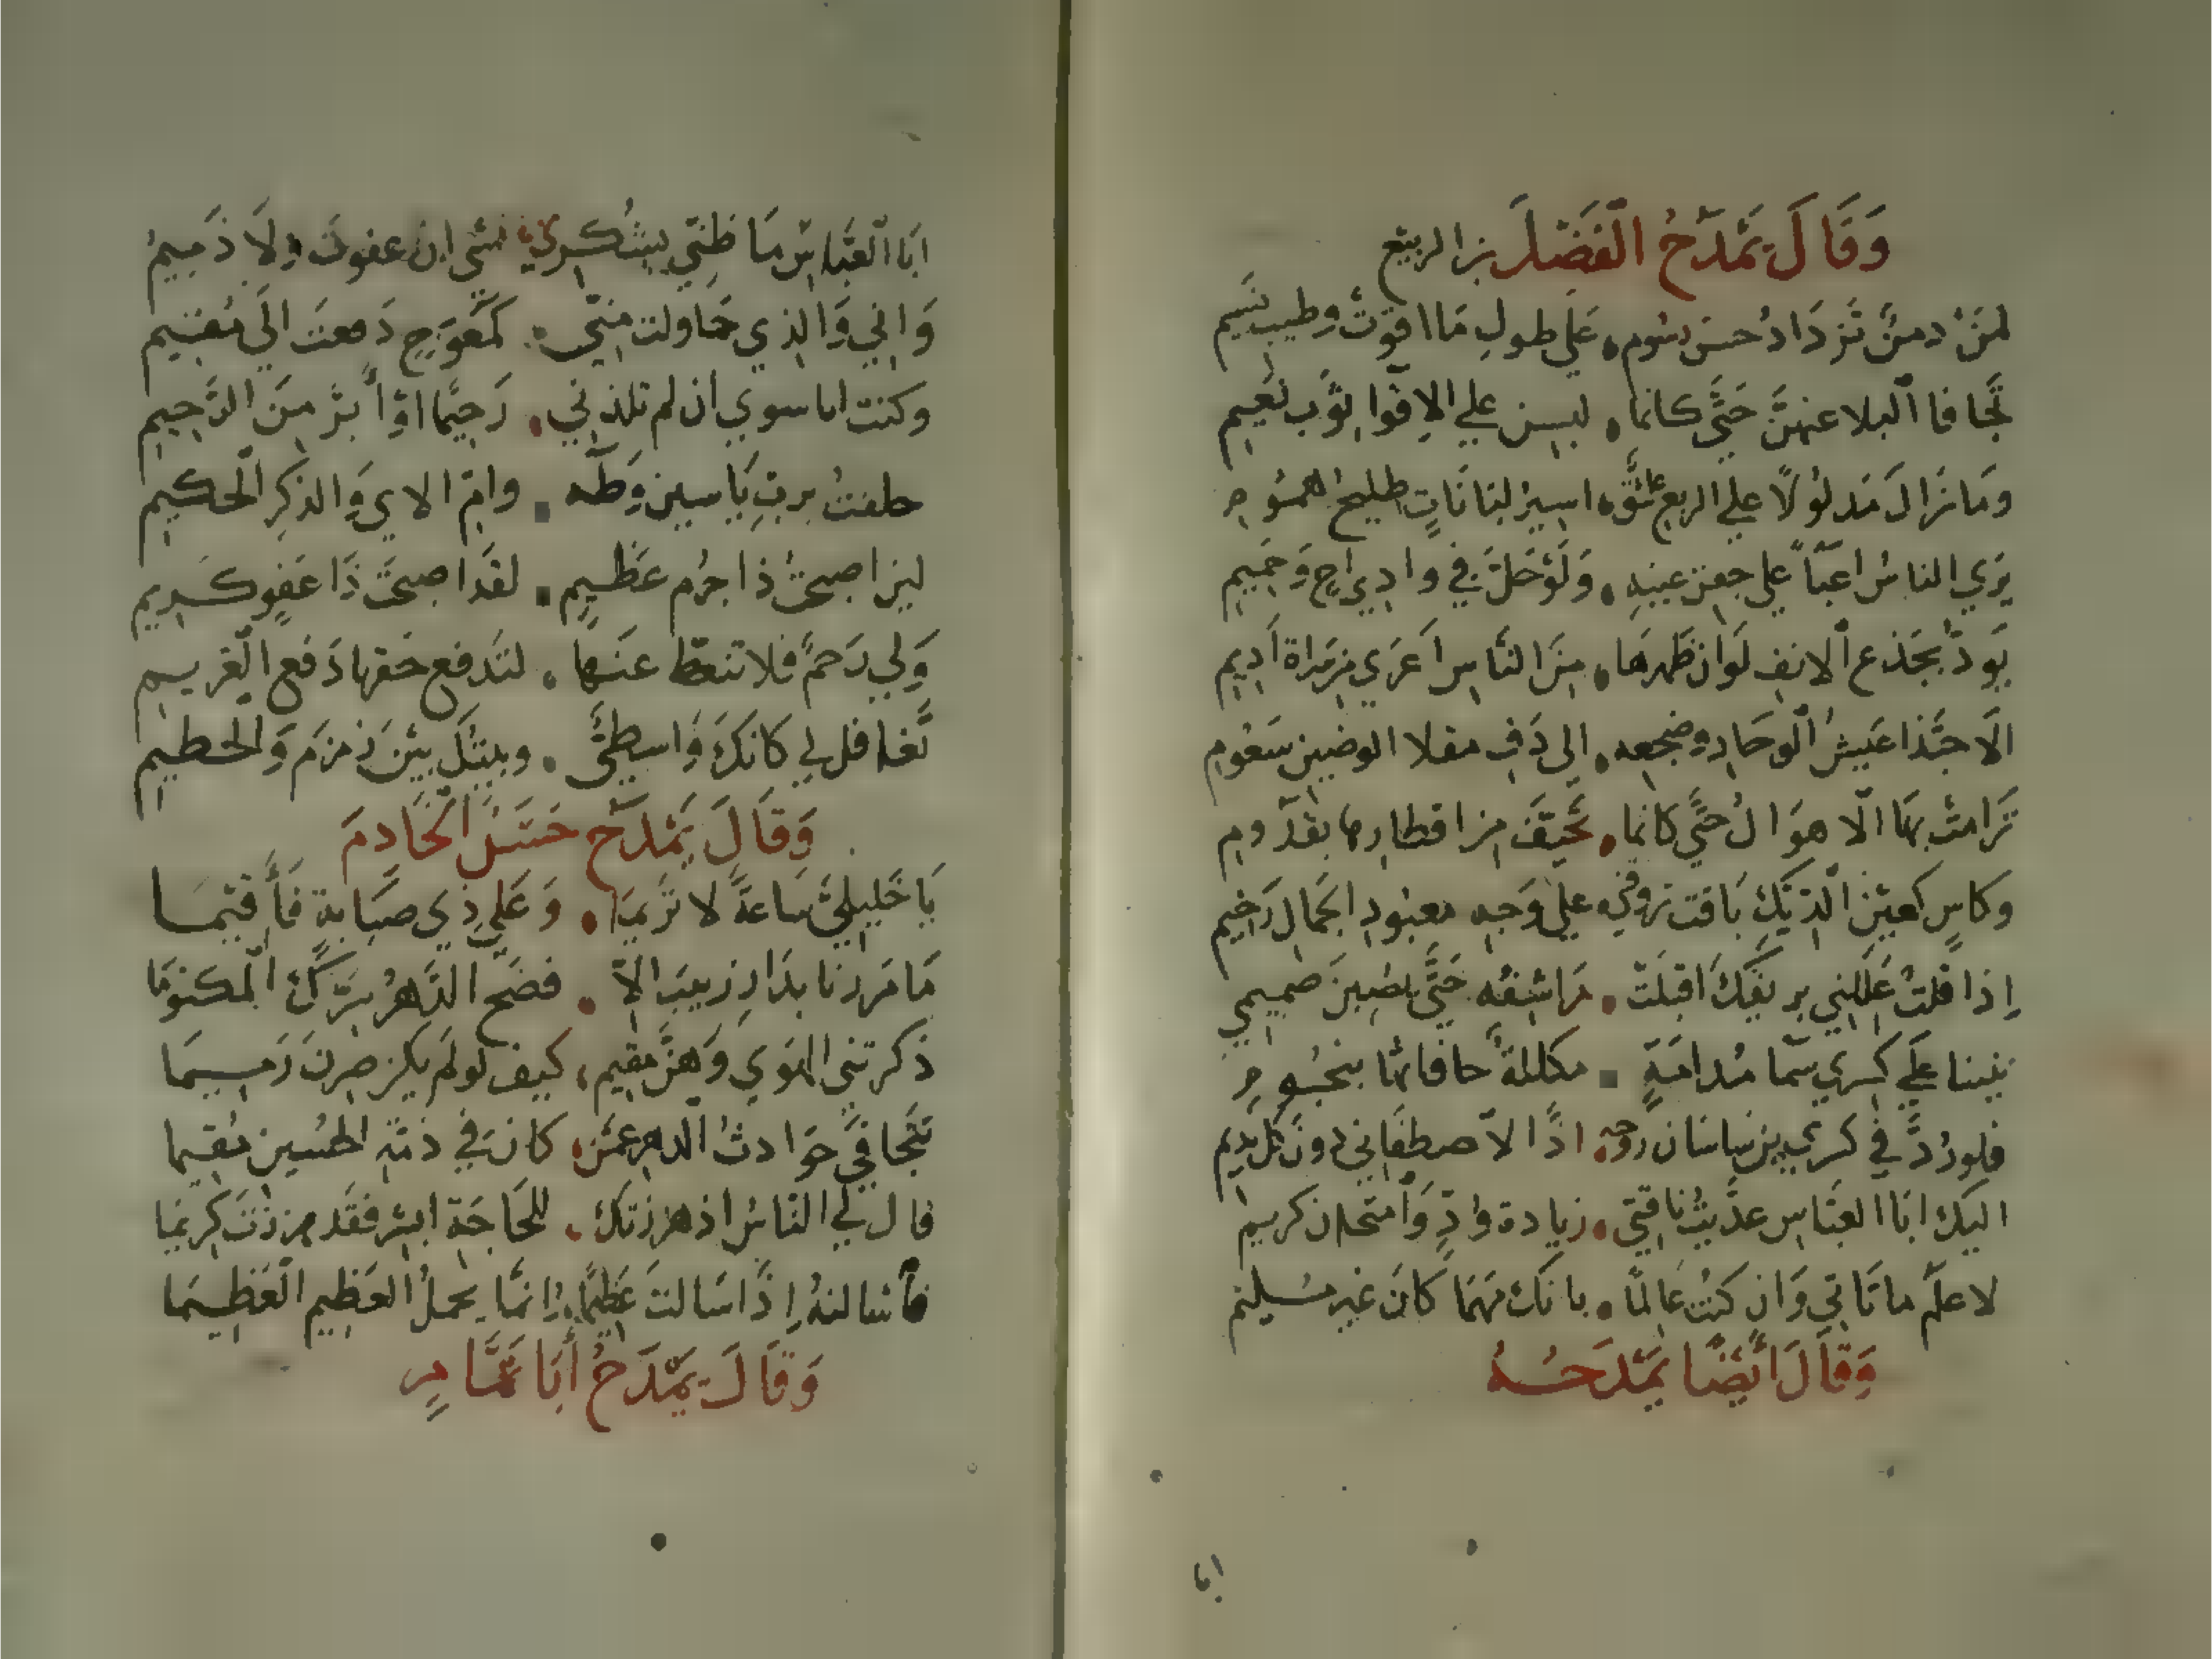 وَقَالَ يَمْدَحُ الْفَضْلَ بن الربيع
لمَنْ دمنٌ تَزدَادُ حسنَ رسُومٍ . عَلَى طولِ مَا اقوَتْ وطيب نَسيم
تجَافا البلا عنهنَّ حَتَّى كانما . لبسن على الاقوا ثوبَ نعيم
ومَا زالَ مَدلولاً على الربع عاشقٌ . اسيرُ لبانَاتٍ طليح هموم
يَرى الناسُ اعبَاً على جفن عينهِ . وَلَوْ حَلَّ في وادي اراحٍ وَحَميم
يَودّ بجَذع الانف لَوان ظَهرهَا . مِنَ النَّاسِ اَعرَى من سَراة اَديم
اَلا حبَّذا عَيشُ الوحَاد وضجعه . الى دَفِ مقلا الوضين سَعُوم
تَرامتْ بهَا الاهوَالُ حَتَّى كانما . تحَيّفَ من اقطارها بقدُوم
وكاسٍ كعَيْن الدّيكِ بَاتت تروقني . على وَجهِ معبُودِ الجمال رَخيم
إذا قلتُ عَلِّلني بريقكَ اقبلَتْ . مَراشفه حَتَّى يصِبنَ صميمي
بنينا عَلَى كسري سما مُدامَةٍ . مكللةً حافاتهَا بنجُوم
فلو رُدَّ في كسري بن ساسَان روحه . اذاً لاصطفاني دونَ كل نديم
اليكَ ابَا العبَّاس عدَّيتُ ناقتي . زيادة وادٍ وَامتحان كريم
لاعلَمَ ما تَاتي وَان كنتُ عَالماً . بانكَ مَهمَا كانَ غير مُسليم
وَقَالَ اَيْضًا يَمْدَحُـهُ
ابا
ابَا العَّباسِ مَا ظَنّي بِشُكري . مَتى ان عفوتَ وَلَا ذَميمُ
وَاني وَالذي حَاولت مني . كمعَوّجٍ دَفعتَ الى مُقيم
وكنت ابا سوي ان لم تلدني . رَحيمًا اوْ اَبرَّ مِنَ الرَّحيم
حلفتُ بربِّ يَاسين وَطَه . وامّ الاي وَالذكرِ الحكيم
لين اصبحتُ ذا جرُمٍ عَظيمٍ . لقَد اصبحتَ ذَا عَفوٍ كَريم
وَلي رَحمٌ فلا تنعط عَنها . لتَدفع حقها دَفع الغريم
تَغافل لي كانَكَ وَاسطيٌّ . وبيتكَ بيْنَ زمزَم وَالحطيم
وَقَالَ يَمْدَحُ حَسَنَ الخَادِمَ
يَا خَليليَّ سَاعةً لا تَريمَا . وَعَلى ذِي صبَابةٍ فَأقيمَـا
مَا مَررنا بدَار زينبَ الاّ . فضَح الدَّهرُ سرَّكَ المكتومَا
ذكرتني الهَوي وَهنَّ مقيم ، كيف لو لم يكن صِرنَ رَميـمَا
تتجافيَ حوَادثُ الدهر عمّن . كانَ في ذمّةِ الحُسين مُقيما
قال لي النَّاسُ اذ هززتك . للحَاجَة ابشر فقد هززتَ كريمَا
فأسالنهُ إذَا سَالتَ عَظيمًا . إنمَّا يحملُ العَظيم العَظِـيمَا
وَقَالَ يَمْدَحُ أَبَا تمَّـامٍ